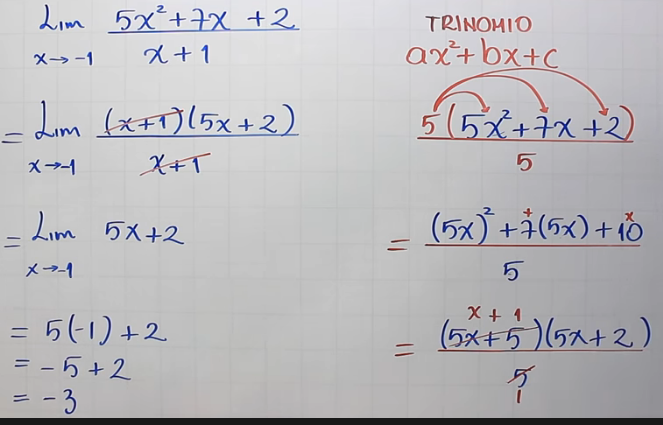 Lim 5x²+7x+2
x→-1 x+1
= Lim (x+1)(5x+2)
x→-1 x+1
= Lim 5x+2
x→-1
= 5(-1)+2
= -5+2
= -3
TRINOMIO
ax²+bx+c
5(5x²+7x+2)
5
= (5x)²+7(5x)+10
+ x
5
x+1
= (5x+5)(5x+2)
5
1